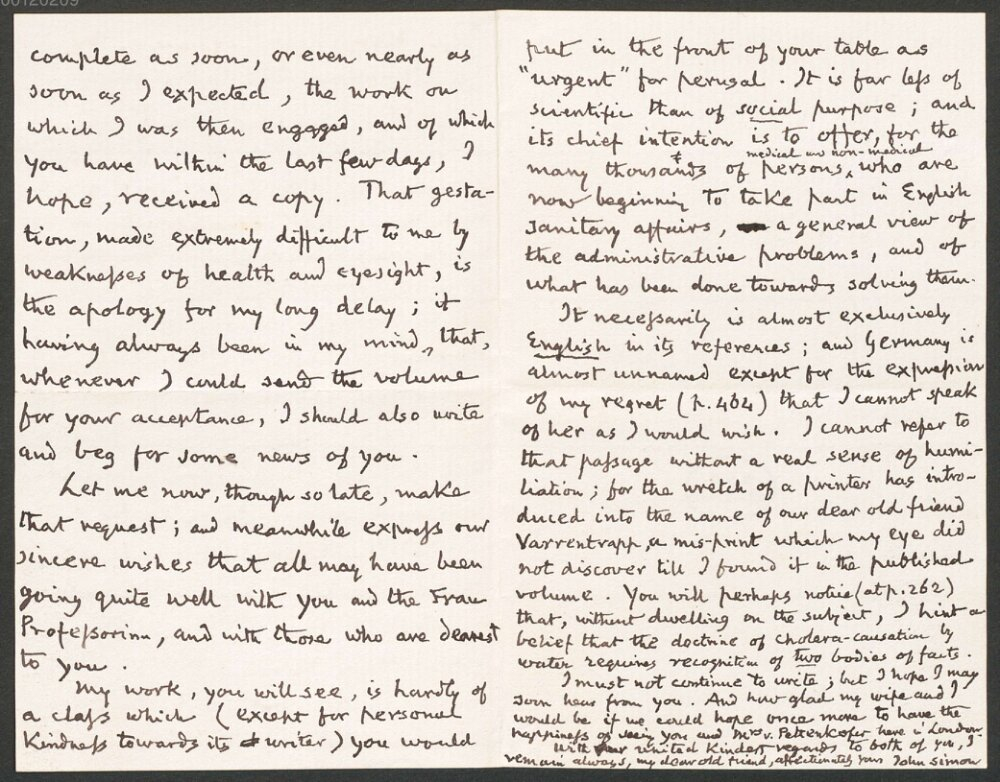 00120209
complete as soon, or even nearly as
soon as I expected, the work on
which I was then engaged, and of which
you have within the last few days, I
hope, received a copy. That gesta-
tion, made extremely difficult to me by
weaknesses of health and eyesight, is
the apology for my long delay; it
having always been in my mind, that,
whenever I could send the volume
for your acceptance, I should also write
and beg for some news of you.
Let me now, though so late, make
that request; and meanwhile express our
sincere wishes that all may have been
going quite well with you and the Frau
Professorinn, and with those who are dearest
to you.
My work, you will see, is hardly of
a class which (except for personal
kindness towards its writer) you would
put in the front of your table as
"urgent" for perusal. It is far less of
scientific than of social purpose; and
its chief intention is to offer, for the
medical and non-medical
many thousands of persons, who are
now beginning to take part in English
sanitary affairs, a general view of
the administrative problems, and of
what has been done towards solving them.
It necessarily is almost exclusively
English in its references; and Germany is
almost unnamed except for the expression
of my regret (p. 464) that I cannot speak
of her as I would wish. I cannot refer to
that passage without a real sense of humi-
liation; for the wretch of a printer has intro-
duced into the name of our dear old friend
Varrentrapp, a mis-print which my eye did
not discover till I found it in the published
volume. You will perhaps notice (at p. 262)
that, without dwelling on the subject, I hint a
belief that the doctrine of cholera-causation by
water requires recognition of two bodies of facts.
I must not continue to write; but I hope I may
soon hear from you. And how glad my wife and I
would be if we could hope once more to have the
happiness of seeing you and Mrs v. Pettenkofer here in London.
With our united kindest regards to both of you, I
remain always, my dear old friend, affectionately yours John Simon